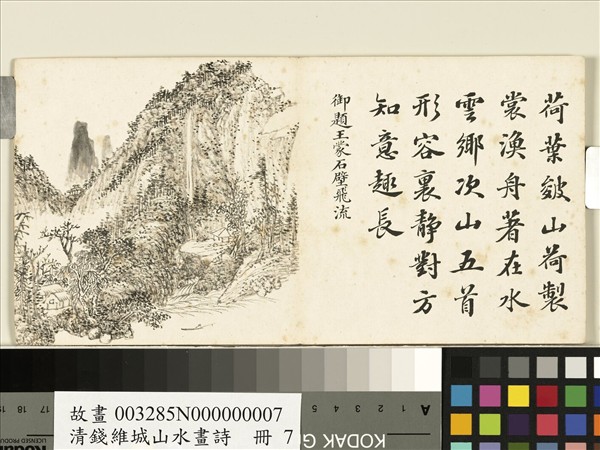 荷葉皴山荷製
裳漁舟著在水
雲鄉次山五首
形容裏静對方
知意趣長
御題王蒙石壁飛流
故畫 003285N000000007
清錢維城山水畫詩 冊 7
KODAK G
A